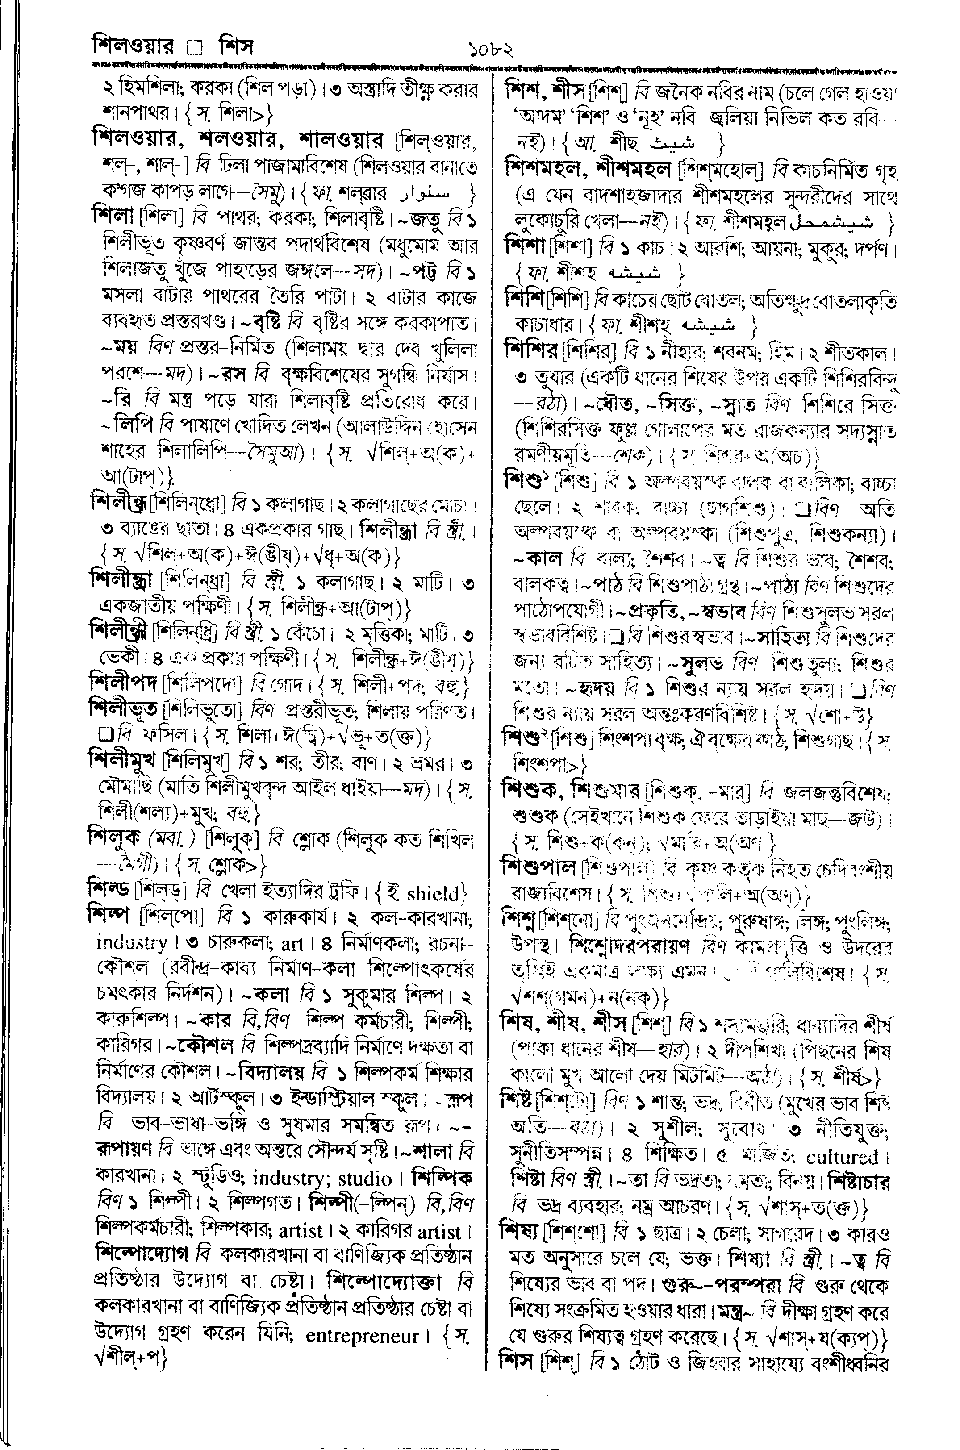 শিলওয়ার □ শিস
১০৮২
২ হিমশিলা; করকা (শিল পড়া)। ৩ অস্ত্রাদি তীক্ষ্ণ করার
শানপাথর। {স. শিলা>}
শিলওয়ার, শলওয়ার, শালওয়ার [শিল্‌ওয়ার,
শল্‌-, শাল্‌-] বি ঢিলা পাজামাবিশেষ (শিলওয়ার বানাতে
কগজ কাপড় লাগে—সৈমু)। {ফা. শল্‌ৱার سلوار }
শিলা [শিলা] বি পাথর; করকা; শিলাবৃষ্টি। ~জতু বি ১
শিলীভূত কৃষ্ণবর্ণ জান্তব পদার্থবিশেষ (মধুমোম আর
শিলাজতু খুঁজে পাহাড়ের জঙ্গলে—সদ)। ~পট্ট বি ১
মসলা বাটার পাথরের তৈরি পাটা। ২ বাটার কাজে
ব্যবহৃত প্রস্তরখণ্ড। ~বৃষ্টি বি বৃষ্টির সঙ্গে করকাপাত।
~ময় বিণ প্রস্তর-নির্মিত (শিলাময় দ্বার দেব খুলিলা
পরশে—মদ)। ~রস বি বৃক্ষবিশেষের সুগন্ধি নির্যাস।
~রি বি মন্ত্র পড়ে যারা শিলাবৃষ্টি প্রতিরোধ করে।
~লিপি বি পাষাণে খোদিত লেখন (আলাউদ্দিন হোসেন
শাহের শিলালিপি—সৈমুআ)। {স. √শিল্‌+অ(ক)+
আ(টাপ্‌)}
শিলীন্ধ্র [শিলিন্‌ধ্রো] বি ১ কলাগাছ। ২ কলাগাছের মোচা।
৩ ব্যাঙের ছাতা। ৪ একপ্রকার গাছ। শিলীন্ধ্রা বি স্ত্রী.।
{স. √শিল+অ(ক)+ঈ(ঙীষ্‌)+√ধৃ+অ(ক)}
শিলীন্ধ্রা [শিলিন্‌ধ্রা] বি স্ত্রী. ১ কলাগাছ। ২ মাটি। ৩
একজাতীয় পক্ষিণী। {স. শিলীন্ধ্র+আ(টাপ্‌)}
শিলীন্ধ্রী [শিলিন্‌ধ্রি] বি স্ত্রী. ১ কেঁচো। ২ মৃত্তিকা; মাটি। ৩
ভেকী। ৪ এক প্রকার পক্ষিণী। {স. শিলীন্ধ্র+ঈ(ঙীষ্‌)}
শিলীপদ [শিলিপদো] বি গোদ। {স. শিলী+পদ; বহু}
শিলীভূত [শিলিভুতো] বিণ প্রস্তরীভূত; শিলায় পরিণত।
□ বি ফসিল। {স. শিলা+ঈ(চ্বি)+√ভূ+ত(ক্ত)}
শিলীমুখ [শিলিমুখ্‌] বি ১ শর; তীর; বাণ। ২ ভ্রমর। ৩
মৌমাছি (মাতি শিলীমুখবৃন্দ আইল ধাইয়া—মদ)। {স.
শিলী(শল্য)+মুখ; বহু}
শিলুক (মবা.) [শিলুক্‌] বি শ্লোক (শিলুক কত শিখিল
—মৈগী)। {স. শ্লোক>}
শিল্ড [শিল্‌ড্‌] বি খেলা ইত্যাদির ট্রফি। {ই. shield}
শিল্প [শিল্‌পো] বি ১ কারুকার্য। ২ কল-কারখানা;
industry। ৩ চারুকলা; art। ৪ নির্মাণকলা; রচনা-
কৌশল (রবীন্দ্র-কাব্য নির্মাণ-কলা শিল্পোৎকর্ষের
চমৎকার নির্দশন)। ~কলা বি ১ সুকুমার শিল্প। ২
কারুশিল্প। ~কার বি,বিণ শিল্প কর্মচারী; শিল্পী;
কারিগর। ~কৌশল বি শিল্পদ্রব্যাদি নির্মাণে দক্ষতা বা
নির্মাণের কৌশল। ~বিদ্যালয় বি ১ শিল্পকর্ম শিক্ষার
বিদ্যালয়। ২ আর্টস্কুল। ৩ ইন্ডাস্ট্রিয়াল স্কুল। ~রূপ
বি ভাব-ভাষা-ভঙ্গি ও সুষমার সমন্বিত রূপ। ~-
রূপায়ণ বি ভাঙ্গে এবং অন্তরে সৌন্দর্য সৃষ্টি। ~শালা বি
কারখানা। ২ স্টুডিও; industry; studio। শিল্পিক
বিণ ১ শিল্পী। ২ শিল্পগত। শিল্পী(-ল্পিন্‌) বি,বিণ
শিল্পকর্মচারী; শিল্পকার; artist। ২ কারিগর artist।
শিল্পোদ্যোগ বি কলকারখানা বা বাণিজ্যিক প্রতিষ্ঠান
প্রতিষ্ঠার উদ্যোগ বা চেষ্টা। শিল্পোদ্যোক্তা বি
কলকারখানা বা বাণিজ্যিক প্রতিষ্ঠান প্রতিষ্ঠার চেষ্টা বা
উদ্যোগ গ্রহণ করেন যিনি; entrepreneur। {স.
√শীল্‌+প}
শিশ, শীস [শিশ্‌] বি জনৈক নবির নাম (চলে গেল হাওয়া
'আদম' 'শিশ' ও 'নূহ' নবি জ্বলিয়া নিভিল কত রবি—
নই)। {আ. শীছ شيث }
শিশমহল, শীশমহল [শিশ্‌মহোল্‌] বি কাচনির্মিত গৃহ
(এ যেন বাদশাহজাদার শীশমহলের সুন্দরীদের সাথে
লুকোচুরি খেলা—নই)। {ফা. শীশমহ়ল شيشمحل }
শিশা [শিশা] বি ১ কাচ। ২ আরশি; আয়না; মুকুর; দর্পণ।
{ফা. শীশহ شيشه }
শিশি [শিশি] বি কাচের ছোট বোতল; অতিক্ষুদ্র বোতলাকৃতি
কাচাধার। {ফা. শীশহ شيشه }
শিশির [শিশির্‌] বি ১ নীহার; শবনম; হিম। ২ শীতকাল।
৩ তুষার (একটি ধানের শিষের উপর একটি শিশিরবিন্দু
—রঠা)। ~ধৌত, ~সিক্ত, ~স্নাত বিণ শিশিরে সিক্ত
(শিশিরসিক্ত ফুল্ল গোলাপের মত রাজকন্যার সদ্যস্নাত
রমণীয়মূর্তি—শেক)। {স. শিশির+অ(অচ্‌)}
শিশু১ [শিশু] বি ১ অল্পবয়স্ক বালক বা বালিকা; বাচ্চা
ছেলে। ২ শাবক; বাচ্চা (ছাগশিশু)। □ বিণ অতি
অল্পবয়স্ক বা অল্পবয়স্কা (শিশুপুত্র, শিশুকন্যা)।
~কাল বি বাল্য; শৈশব। ~ত্ব বি শিশুর ভাব; শৈশব;
বালকত্ব। ~পাঠ বি শিশুপাঠ্য গ্রন্থ। ~পাঠ্য বিণ শিশুদের
পাঠোপযোগী। ~প্রকৃতি, ~স্বভাব বিণ শিশুসুলভ সরল
স্বভাববিশিষ্ট। □ বি শিশুর স্বভাব। ~সাহিত্য বি শিশুদের
জন্য রচিত সাহিত্য। ~সুলভ বিণ শিশু তুল্য; শিশুর
মতো। ~হৃদয় বি ১ শিশুর ন্যায় সরল হৃদয়। □ বিণ
শিশুর ন্যায় সরল অন্তঃকরণবিশিষ্ট। {স. √শো+উ}
শিশু২ [শিশু] শিংশপা বৃক্ষ; ঐ বৃক্ষের কাঠ; শিশুগাছ। {স.
শিংশপা>}
শিশুক, শিশুমার [শিশুক্‌, -মার্‌] বি জলজন্তুবিশেষ;
শুশুক (সেইখানে শিশুক ফেরে তাড়াইয়া মাছ—জউ)।
{স. শিশু+ক(কন্‌); √মারি+অ(অণ্‌)}
শিশুপাল [শিশুপাল্‌] বি কৃষ্ণ কর্তৃক নিহত চেদিবংশীয়
রাজাবিশেষ। {স. শিশু+√পালি+অ(অণ্‌)}
শিশ্ন [শিশ্‌নো] বি পুংজননেন্দ্রিয়; পুরুষাঙ্গ; লিঙ্গ; পুংলিঙ্গ;
উপস্থ। শিশ্নোদরপরায়ণ বিণ কামপ্রবৃত্তি ও উদরের
তৃপ্তিই একমাত্র লক্ষ্য এমন। গালিবিশেষ। {স.
√শশ্‌(গমন)+ন(নক্‌)}
শিষ, শীষ, শীস [শিশ্‌] বি ১ শস্যমঞ্জরি; ধান্যাদির শীর্ষ
(পাকা ধানের শীষ—হার)। ২ দীপশিখা (পিছনের শিষ
কালো মুখ আলো দেয় মিটমিট—অঠা)। {স. শীর্ষ>}
শিষ্ট [শিশ্‌টো] বিণ ১ শান্ত; ভদ্র; বিনীত (মুখের ভাব শিষ্ট
অতি—রঠা)। ২ সুশীল; সুবোধ। ৩ নীতিযুক্ত;
সুনীতিসম্পন্ন। ৪ শিক্ষিত। ৫ মার্জিত; cultured।
শিষ্টা বিণ স্ত্রী.। ~তা বি ভদ্রতা; নম্রতা; বিনয়। শিষ্টাচার
বি ভদ্র ব্যবহার; নম্র আচরণ। {স. √শাস্‌+ত(ক্ত)}
শিষ্য [শিশ্‌শো] বি ১ ছাত্র। ২ চেলা; সাগরেদ। ৩ কারও
মত অনুসারে চলে যে; ভক্ত। শিষ্যা বি স্ত্রী.। ~ত্ব বি
শিষ্যের ভাব বা পদ। গুরু-~-পরম্পরা বি গুরু থেকে
শিষ্যে সংক্রমিত হওয়ার ধারা। মন্ত্র~ বি দীক্ষা গ্রহণ করে
যে গুরুর শিষ্যত্ব গ্রহণ করেছে। {স. √শাস্‌+য(ক্যপ্‌)}
শিস [শিশ্‌] বি ১ ঠোঁট ও জিহ্বার সাহায্যে বংশীধ্বনির